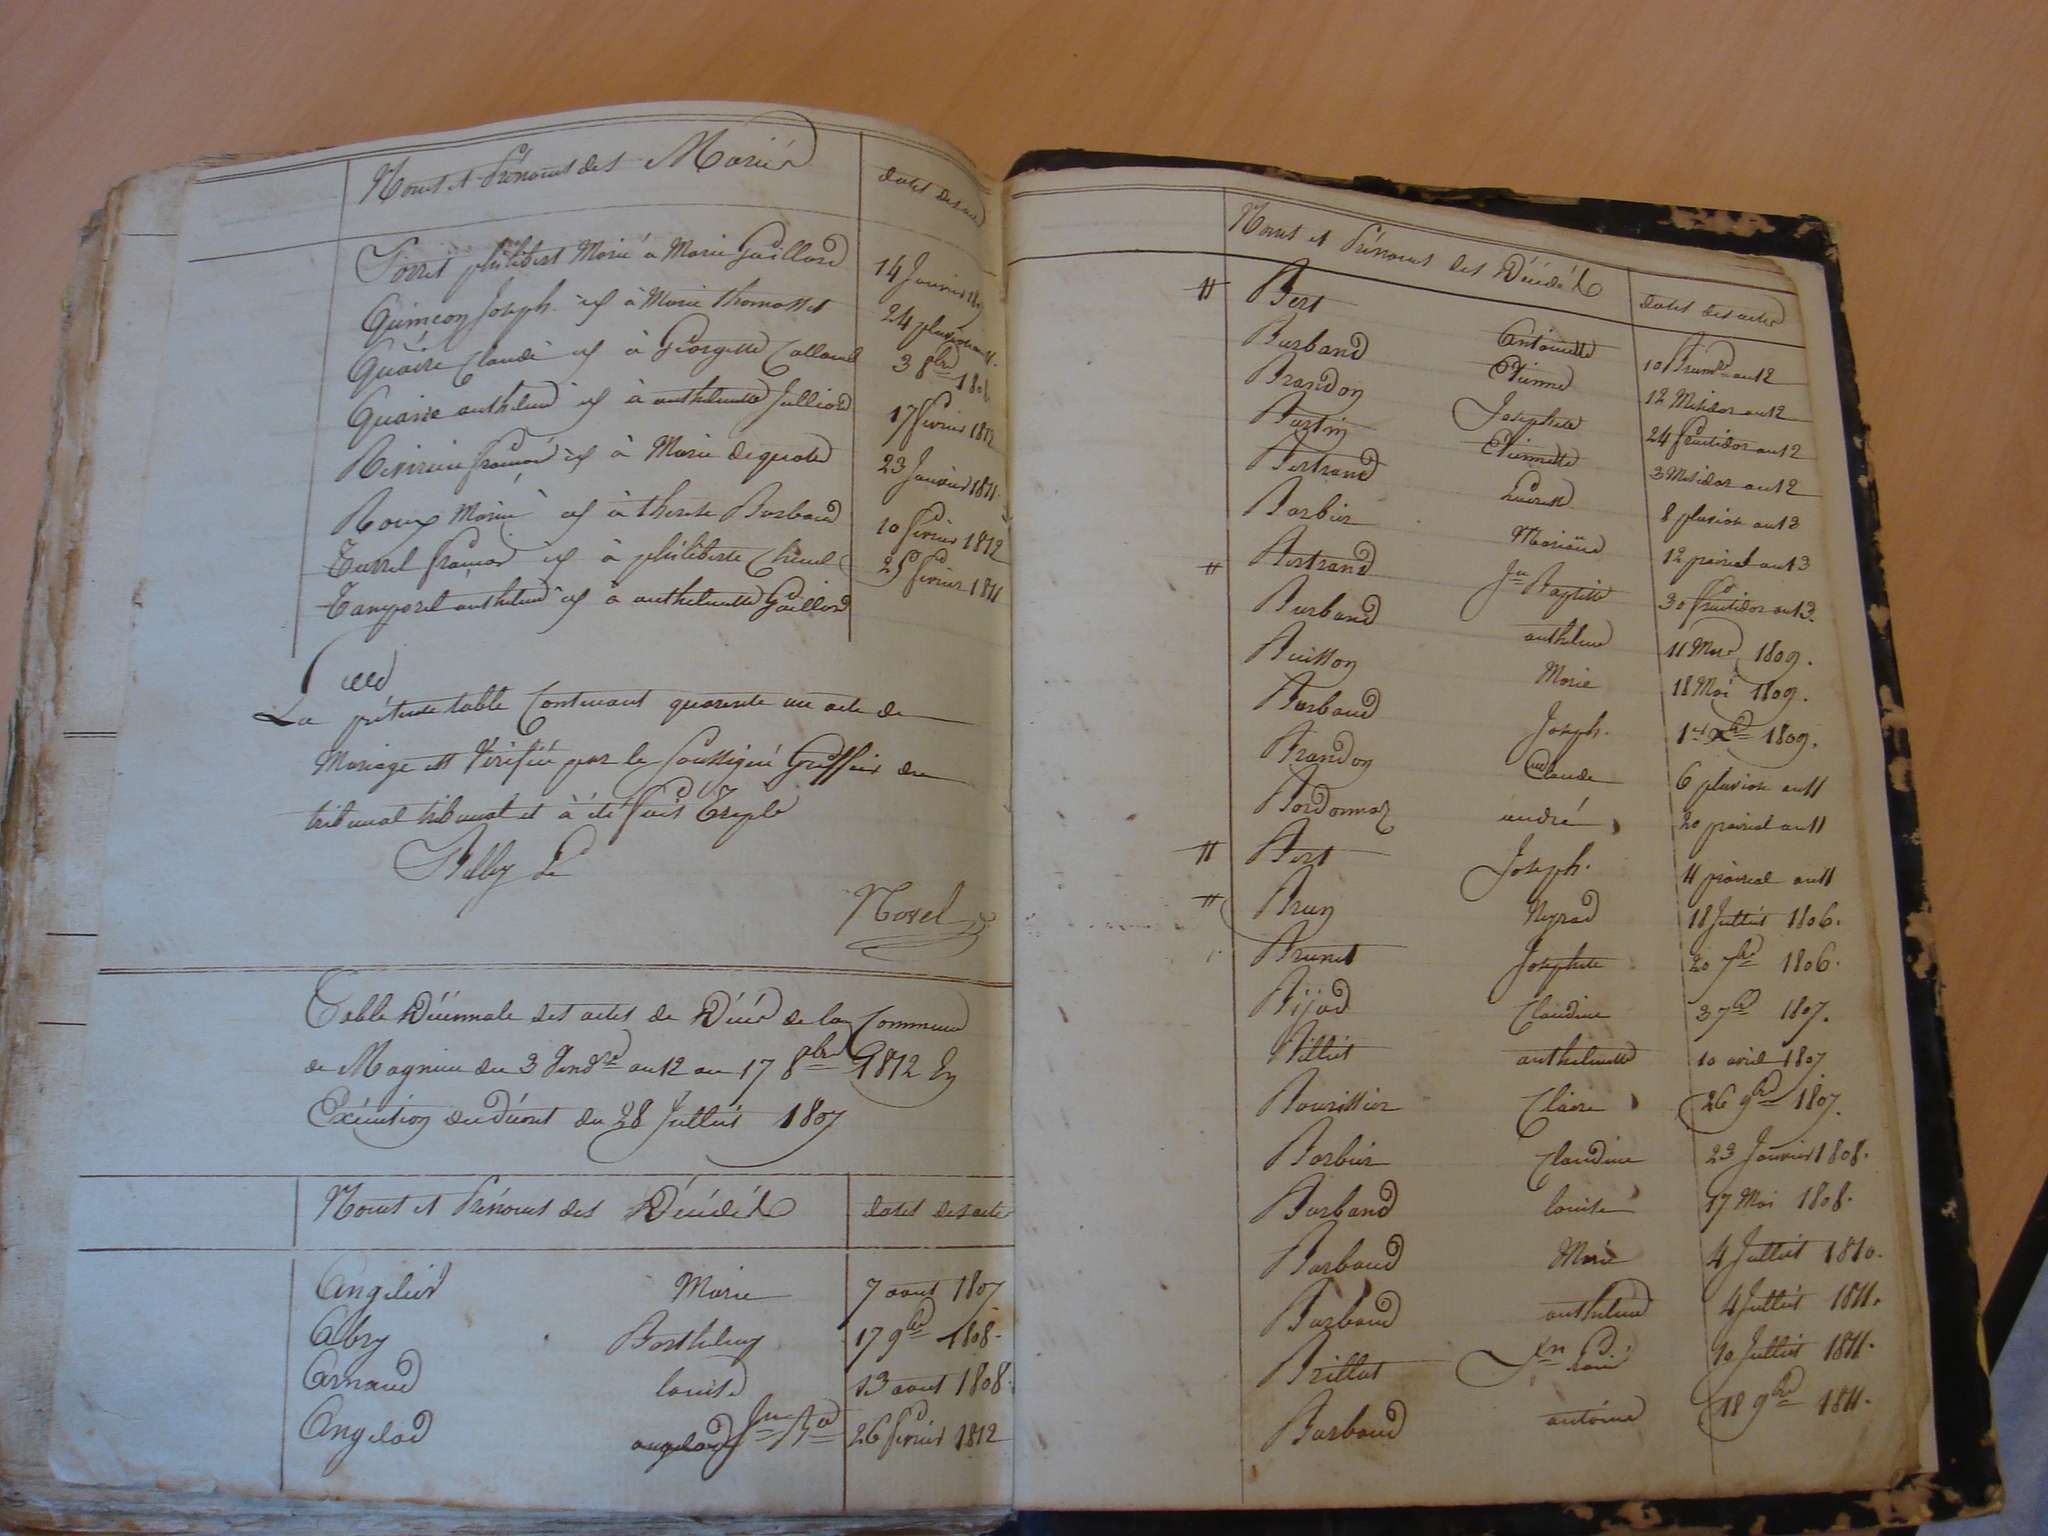 Noms et Prénoms des Mariés
dates des actes
Perret philibert Marié à Marie Gaillard 14 Janvier
Guincon Joseph id à Marie thomasset 24 pluviose an 11.
Guaire Claude id à Georgette Callamel 3 8bre 180
Guaire anthelme id à anthelmette Julliard 17 fevrier 1812
francois id à Marie 23 Janvier 1811.
Roux Marié id à therese Barbaud 10 fevrier 1812
francois id à philiberte 25 fevrier 1811
anthelme id à anthelmette Gaillard
La présente table Contenant quarente un acte de
Mariage est Vérifiée par le Soussigné Greffier du
tribunal tribunal et à été fais Triple
Morel
Table Décennale des actes de Décés de la Commune
de Magnieu du 3 Vendre an 12 au 17 8bre 1812 En
Exécution du décret du 28 Juillet 1807
Noms et Prénoms des Décédés dates des actes
Angelier Marie 7 aout 1807
Abry Barthelemy 17 9bre 1808.
Arnaud louise 13 aout 1808.
Angelod Jn Bte 26 fevrier 1812
Noms et Prénoms des Décédés dates des actes
Bert Antoinette 10 Brumre an 12
Barband Etienne 12 Mesidor an 12
Brandon Josephte 24 fructidor an 12
Burtin Etiennette 3 Mesidor an 12
Bertrand 8 pluviose an 13
Barbier Mariane 12 prairial an 13
Bertrand Jn Baptiste 30 fructidor an 13.
Barband anthelme 11 Mars 1809.
Buisson Marie 18 Mai 1809.
Barbaud Joseph. 1er Xbre 1809.
Brandon Claude 6 pluviose an 11
Bordonnaz andré 20 prairial an 11
Bert Joseph. 4 prairial an 11
Brun 18 Juillet 1806.
Brunet Josephte 20 7bre 1806.
Bijod Claudine 3 7bre 1807.
Billiet anthelmette 10 avril 1807
Bourissier Claire 26 9bre 1807.
Barbier Claudine 23 Janvier 1808.
Barband louise 17 Mai 1808.
Barbaud Marie 4 Juillet 1810.
Barbaud anthelme 4 Juillet 1811.
Brillat 10 Juillet 1811.
Barbaud antoine 18 9bre 1811.